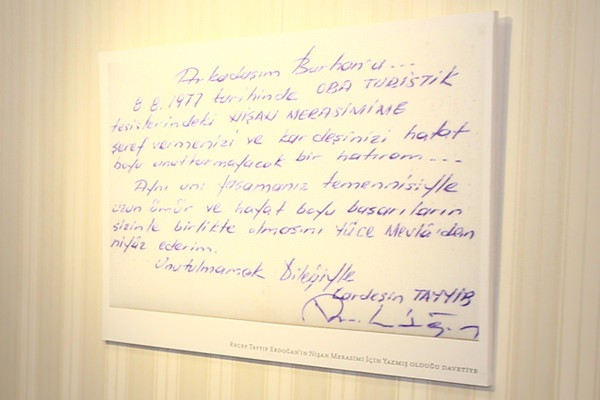 Arkadaşım Burhan'a...
8.8.1977 tarihinde OBA TURİSTİK
tesislerindeki NİŞAN MERASİMİME
şeref vermenizi ve kardeşinizi hayat
boyu unutturmayacak bir hatıram...
Aynı anı yaşamanız temennisiyle
uzun ömür ve hayat boyu başarıların
sizinle birlikte olmasını YÜCE Mevlâ'dan
niyâz ederim.
Unutulmamak Dileğiyle
Kardeşin TAYYİB
RECEP TAYYİP ERDOĞAN'IN NİŞAN MERASİMİ İÇİN YAZMIŞ OLDUĞU DAVETİYE